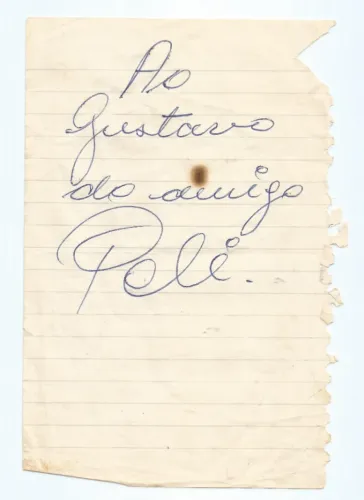 Ao
Gustavo
do amigo
Pelé.